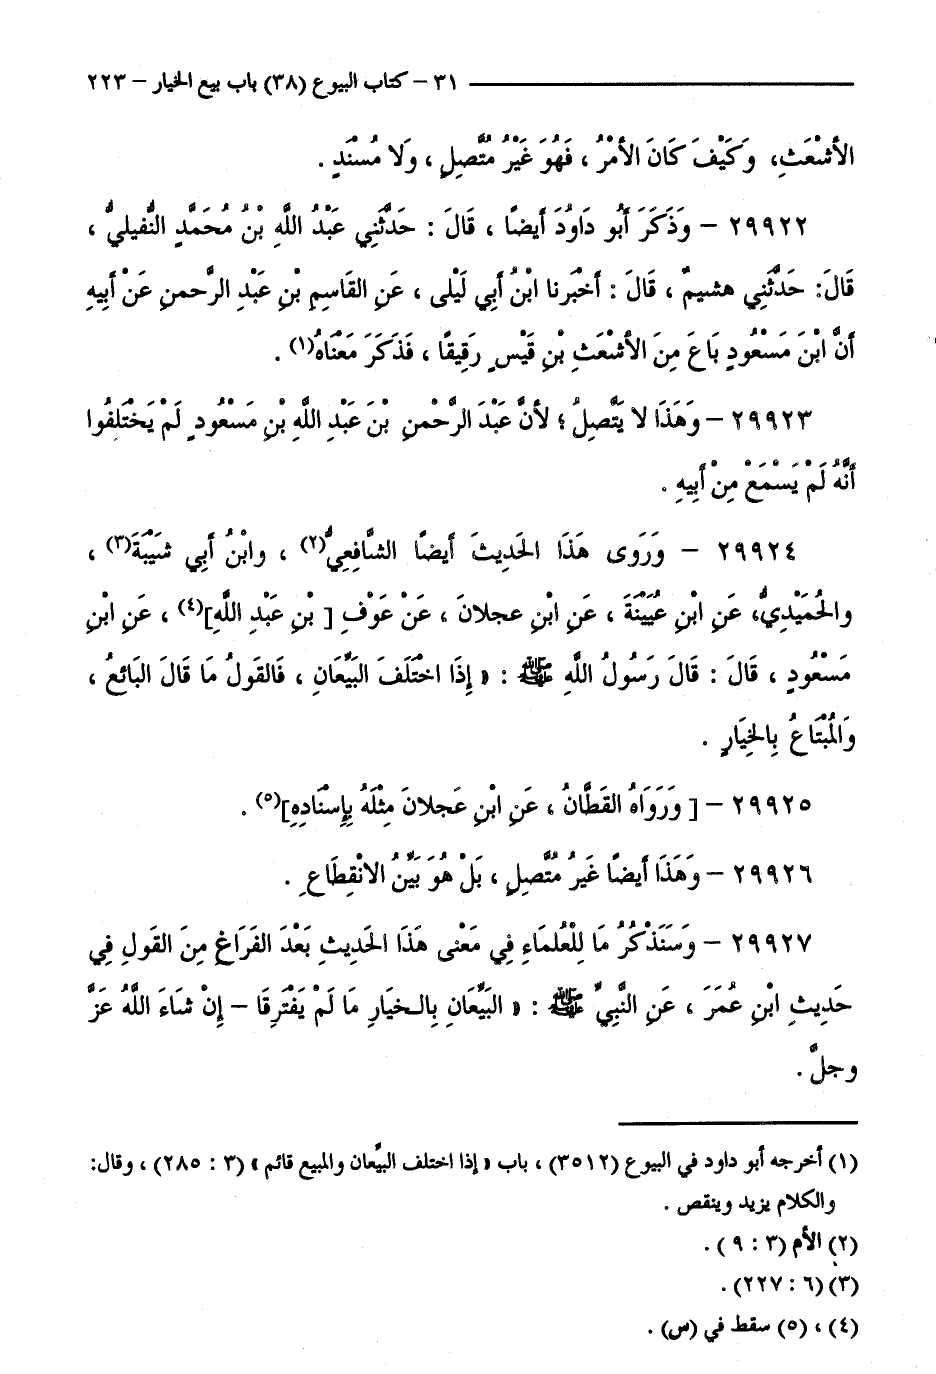 ٣١ – كتاب البيوع (٣٨) باب بيع الخيار – ٢٢٣
الأشْعَثِ، وَكَيْفَ كَانَ الأمْرُ ، فَهُوَ غَيْرُ مُتَّصِلٍ ، وَلا مُسْنَدٍ .
٢٩٩٢٢ – وَذَكَرَ أبُو دَاوُدَ أيضًا ، قَالَ : حَدَّثَنِي عَبْدُ اللَّهِ بْنُ مُحَمَّدٍ النُّفيليُّ ،
قَالَ: حَدَّثَنِي هشيمٌ ، قَالَ : أخْبَرنا ابْنُ أبِي لَيْلى ، عَنِ القَاسِمِ بْنِ عَبْدِ الرَّحمنِ عَنْ أبِيهِ
أنَّ ابْنَ مَسْعُودٍ بَاعَ مِنَ الأشْعَثِ بْنِ قَيْسٍ رَقِيقًا ، فَذَكَرَ مَعْنَاهُ(١) .
٢٩٩٢٣ – وَهَذَا لا يَتَّصِلُ ؛ لأنَّ عَبْدَ الرَّحْمنِ بْنَ عَبْدِ اللَّهِ بْنِ مَسْعُودٍ لَمْ يَخْتَلِفُوا
أنَّهُ لَمْ يَسْمَعْ مِنْ أبِيهِ .
٢٩٩٢٤ – وَرَوَى هَذَا الحَدِيثَ أيضًا الشَّافِعِيُّ(٢) ، وابْنُ أبِي شَيْبَةَ(٣) ،
والحُمَيْدِيُّ، عَنِ ابْنِ عُيَيْنَةَ ، عَنِ ابْنِ عجلانَ ، عَنْ عَوْفِ [ بْنِ عَبْدِ اللَّهِ](٤) ، عَنِ ابْنِ
مَسْعُودٍ ، قَالَ : قَالَ رَسُولُ اللَّهِ ﷺ : « إِذَا اخْتَلَفَ البَيِّعَانِ ، فَالقَولُ مَا قَالَ البَائعُ ،
وَالمُبْتَاعُ بِالخِيَارِ .
٢٩٩٢٥ – [ وَرَوَاهُ القَطَّانُ ، عَنِ ابْنِ عَجلانَ مِثْلَهُ بِإِسْنَادِهِ](٥) .
٢٩٩٢٦ – وَهَذَا أيضًا غَيرُ مُتَّصِلٍ ، بَلْ هُوَ بَيِّنُ الانْقِطَاعِ .
٢٩٩٢٧ – وَسَنَذْكُرُ مَا لِلْعُلمَاءِ فِي مَعْنى هَذَا الحَدِيثِ بَعْدَ الفَرَاغِ مِنَ القَولِ فِي
حَدِيثِ ابْنِ عُمَرَ ، عَنِ النَّبِيِّ ﷺ : « البَيِّعَانِ بِالـخيَارِ مَا لَمْ يَفْتَرِقَا – إِنْ شَاءَ اللَّهُ عَزَّ
وجلَّ .
(١) أخرجه أبو داود في البيوع (٣٥١٢) ، باب « إذا اختلف البيِّعان والمبيع قائم » (٣ : ٢٨٥) ، وقال:
والكلام يزيد وينقص .
(٢) الأم (٣ : ٩ ) .
(٣) (٦ : ٢٢٧) .
(٤) ، (٥) سقط في (س) .